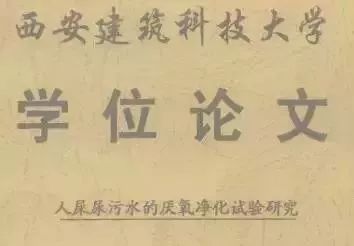 西安建筑科技大学
学位论文
人尿尿污水的厌氧净化试验研究